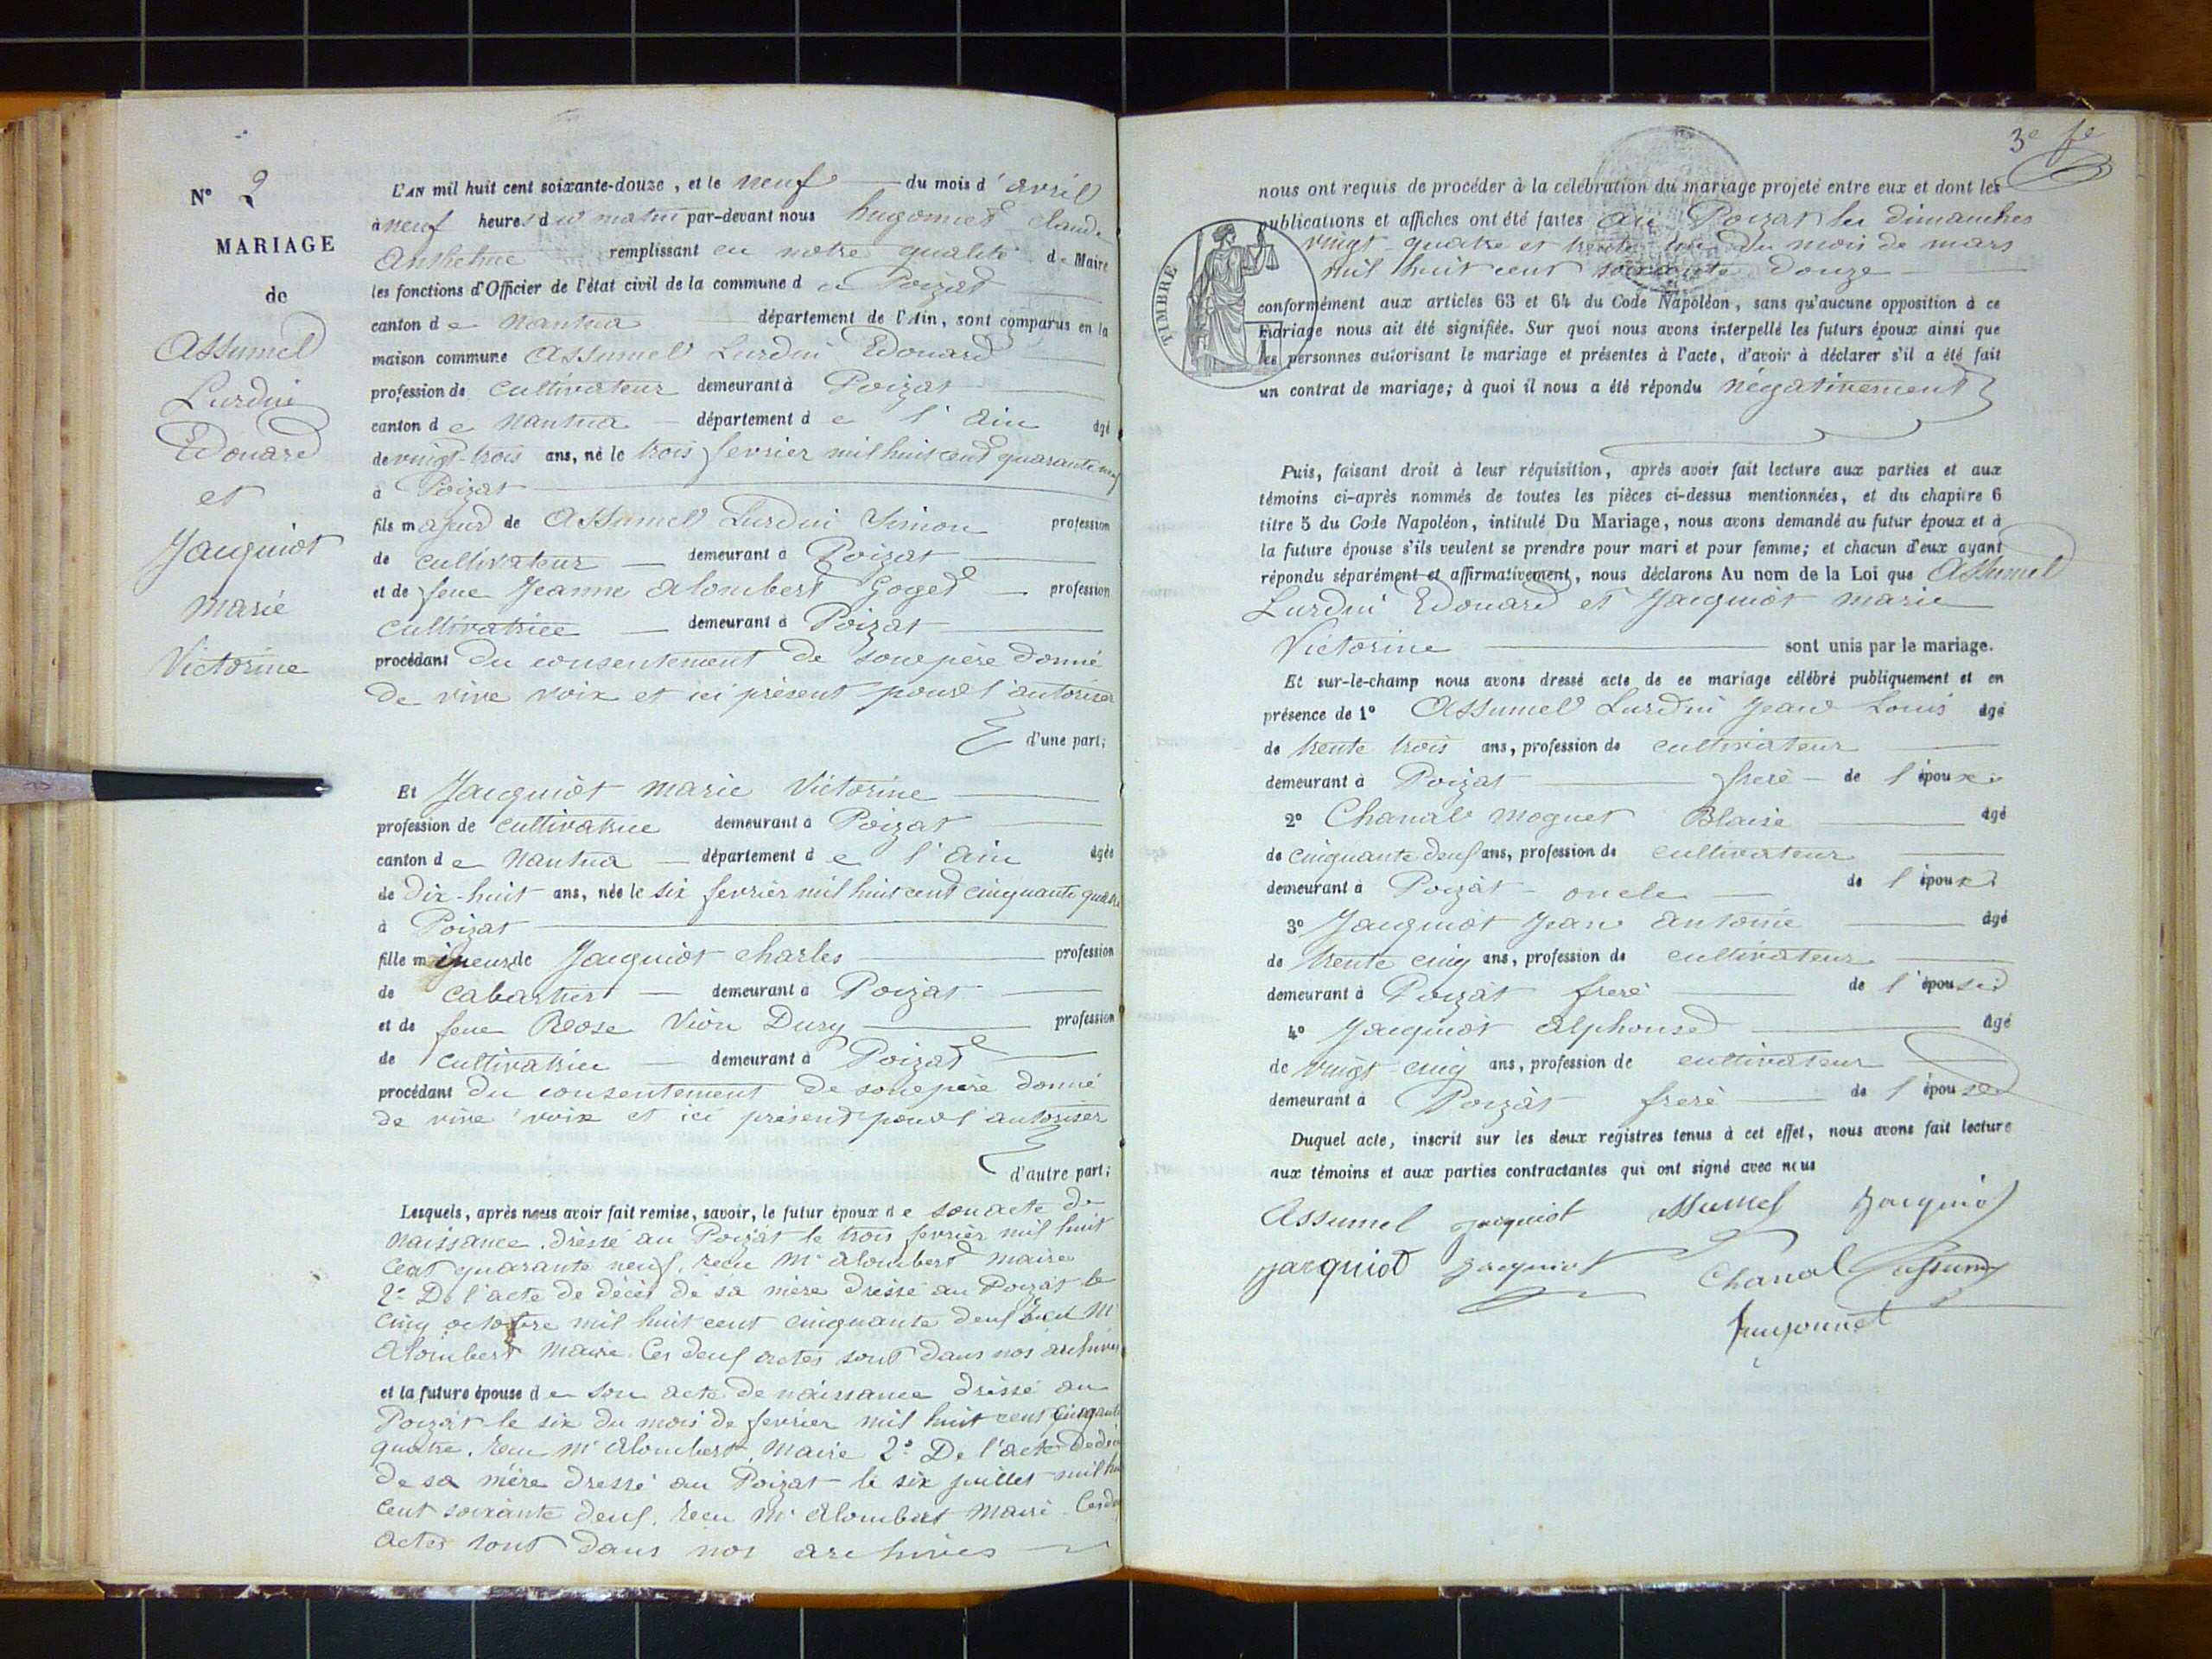 N° 2
MARIAGE
de
Assumel
Lurdin
Edouard
et
Jacquiot
marie
Victorine
L'AN mil huit cent soixante-douze, et le neuf du mois d'avril
à neuf heures du matin par-devant nous hugonnet Claude
Anthelme remplissant en notre qualité de Maire
les fonctions d'Officier de l'état civil de la commune de Poizat
canton de Nantua département de l'Ain, sont comparus en la
maison commune Assumel Lurdin Edouard
profession de cultivateur demeurant à Poizat
canton de Nantua département de l'Ain âgé
de vingt-trois ans, né le trois fevrier mil huit cent quarante neuf
à Poizat
fils majeur de Assumel Lurdin Simon profession
de cultivateur demeurant à Poizat
et de feue Jeanne Alombert Goget profession
cultivatrice demeurant à Poizat
procédant du consentement de son père donné
de vive voix et ici présent pour l'autoriser
d'une part;
Et Jacquiot marie Victorine
profession de cultivatrice demeurant à Poizat
canton de Nantua département de l'Ain âgée
de Dix-huit ans, née le six fevrier mil huit cent cinquante quatre
à Poizat
fille mineure de Jacquiot charles profession
de cabartier demeurant à Poizat
et de feue Rose Vion Dury profession
de cultivatrice demeurant à Poizat
procédant du consentement de son père donné
de vive voix et ici présent pour l'autoriser
d'autre part;
Lesquels, après nous avoir fait remise, savoir, le futur époux de son acte de
naissance dressé au Poizat le trois fevrier mil huit
cent quarante neuf, recu Mr Alombert maire
2° De l'acte de décès de sa mère dressé au Poizat le
cinq octobre mil huit cent cinquante deuf recu Mr
Alombert Maire Ces deuf actes sont dans nos archives
et la future épouse de son acte de naissance dressé au
Poizat le six du mois de fevrier mil huit cent cinquante
quatre, recu Mr Alombert, Maire 2° De l'acte de décès
de sa mère dressé au Poizat le six juillet mil huit
cent soixante deuf, recu Mr Alombert Maire Ces deuf
actes sont dans nos archives
3e fe
nous ont requis de procéder à la célébration du mariage projeté entre eux et dont les
publications et affiches ont été faites au Poizat les dimanches
vingt-quatre et trente un du mois de mars
mil huit cent soixante douze
TIMBRE
conformément aux articles 63 et 64 du Code Napoléon, sans qu'aucune opposition à ce
mariage nous ait été signifiée. Sur quoi nous avons interpellé les futurs époux ainsi que
les personnes autorisant le mariage et présentes à l'acte, d'avoir à déclarer s'il a été fait
un contrat de mariage; à quoi il nous a été répondu négativement
Puis, faisant droit à leur réquisition, après avoir fait lecture aux parties et aux
témoins ci-après nommés de toutes les pièces ci-dessus mentionnées, et du chapitre 6
titre 5 du Code Napoléon, intitulé Du Mariage, nous avons demandé au futur époux et à
la future épouse s'ils veulent se prendre pour mari et pour femme; et chacun d'eux ayant
répondu séparément et affirmativement, nous déclarons Au nom de la Loi que Assumel
Lurdin Edouard et Jacquiot marie
Victorine sont unis par le mariage.
Et sur-le-champ nous avons dressé acte de ce mariage célébré publiquement et en
présence de 1° Assumel Lurdin Jean Louis âgé
de trente trois ans, profession de cultivateur
demeurant à Poizat frerè de l'époux
2° Chanal Moguet Blaise âgé
de cinquante deuf ans, profession de cultivateur
demeurant à Poizat oncle de l'époux
3° Jacquiot Jean Antoine âgé
de trente cinq ans, profession de cultivateur
demeurant à Poizat frerè de l'épouse
4° Jacquiot Alphonse âgé
de vingt cinq ans, profession de cultivateur
demeurant à Poizat frerè de l'épouse
Duquel acte, inscrit sur les deux registres tenus à cet effet, nous avons fait lecture
aux témoins et aux parties contractantes qui ont signé avec nous
Assumel Jacquiot Assumel Jacquiot
Jacquiot Jacquiot Chanal Assumel
hugonnet